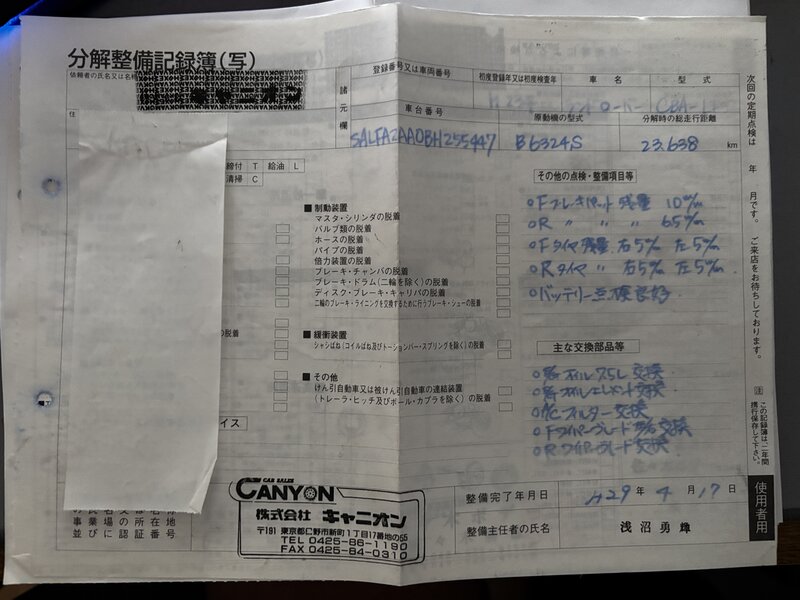 分解整備記録簿(写)
依頼者の氏名又は名称
諸元欄
登録番号又は車両番号
初度登録年又は初度検査年
車名
型式
車台番号
原動機の型式
分解時の総走行距離
SALFA2AA0BH255447
B6324S
23,638 km
住
締付 T 給油 L
清掃 C
■ 制動装置
マスタ・シリンダの脱着
バルブ類の脱着
ホースの脱着
パイプの脱着
倍力装置の脱着
ブレーキ・チャンバの脱着
ブレーキ・ドラム(二輪を除く)の脱着
ディスク・ブレーキ・キャリパの脱着
二輪のブレーキ・ライニングを交換するために行うブレーキ・シューの脱着
の脱着
■ 緩衝装置
シャシばね(コイルばね及びトーションバー・スプリングを除く)の脱着
■ その他
けん引自動車又は被けん引自動車の連結装置
(トレーラ・ヒッチ及びボール・カプラを除く)の脱着
イス
その他の点検・整備項目等
○Fブレーキパット 残量 10m/m
○R 〃 〃 6.5m/m
○Fタイヤ残量 右5m/m 左5m/m
○Rタイヤ 〃 右5m/m 左5m/m
○バッテリー点検良好
主な交換部品等
オイル 7.5L 交換
オイルエレメント交換
○A/Cフィルター交換
○Fワイパーブレード 交換
○Rワイパーブレード交換
CAR SALES
CANYON
株式会社 キャニオン
〒191 東京都日野市新町1丁目17番地の55
TEL 0425-86-1190
FAX 0425-84-0310
整備完了年月日
H29年 4月 17日
整備主任者の氏名
浅沼勇蜂
次回の定期点検は 年 月です。ご来店をお待ちしております。
注 この記録簿は、二年間携行保存して下さい。
使用者用